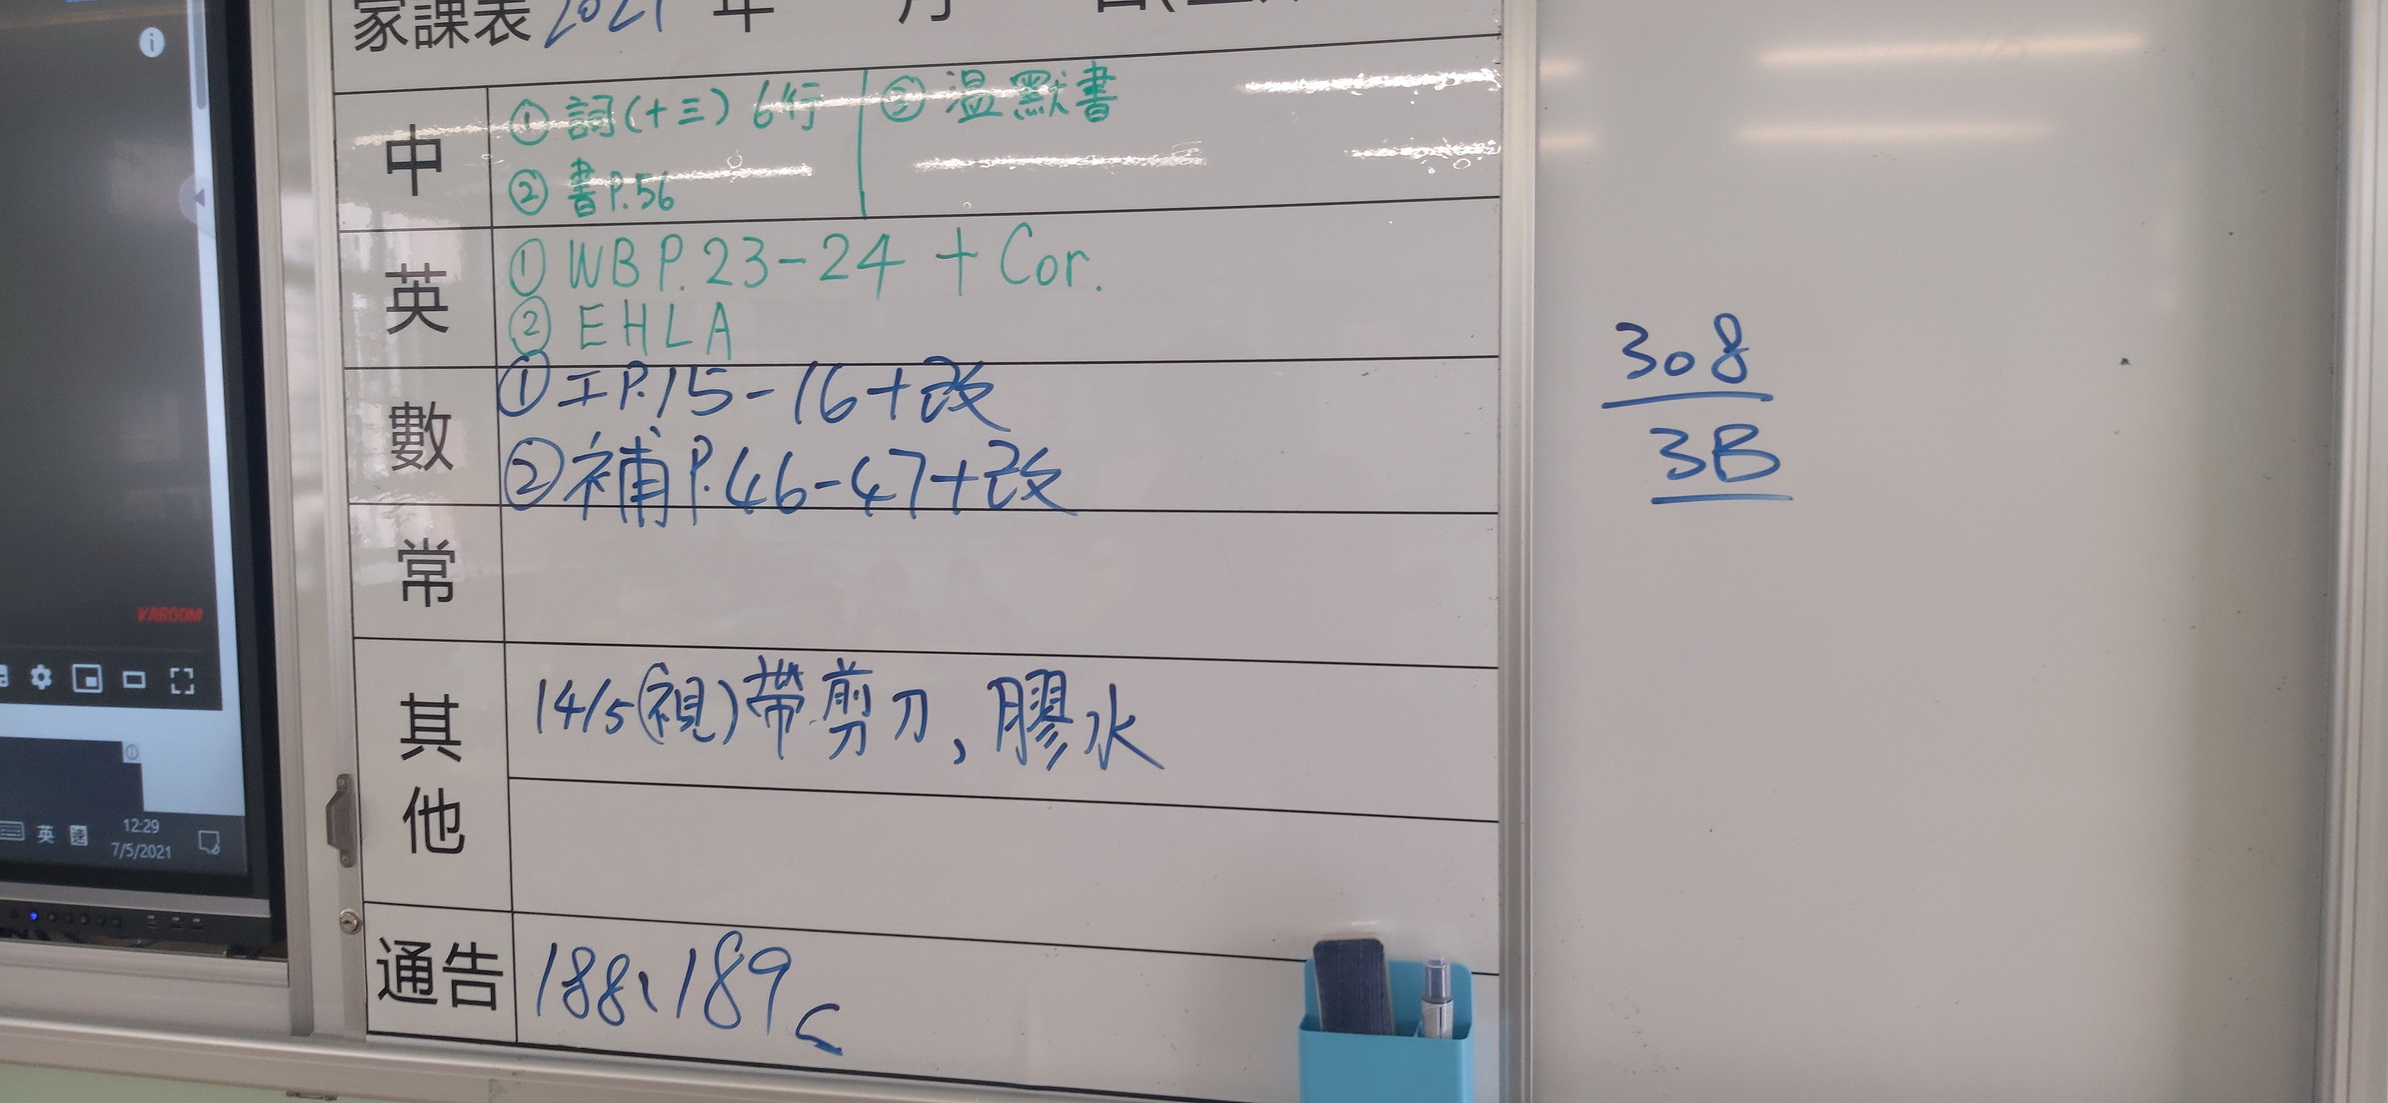 家課表 2021 年 月
中
① 詞(十三) 6行
② 書P.56
③ 溫默書
英
① WB P.23-24 + Cor.
② EHLA
數
① 工P.15-16+改
② 補P.46-47+改
常
其他
14/5(視)帶剪刀、膠水
通告
188、189
308
3B
KABOOM
英
12:29
7/5/2021